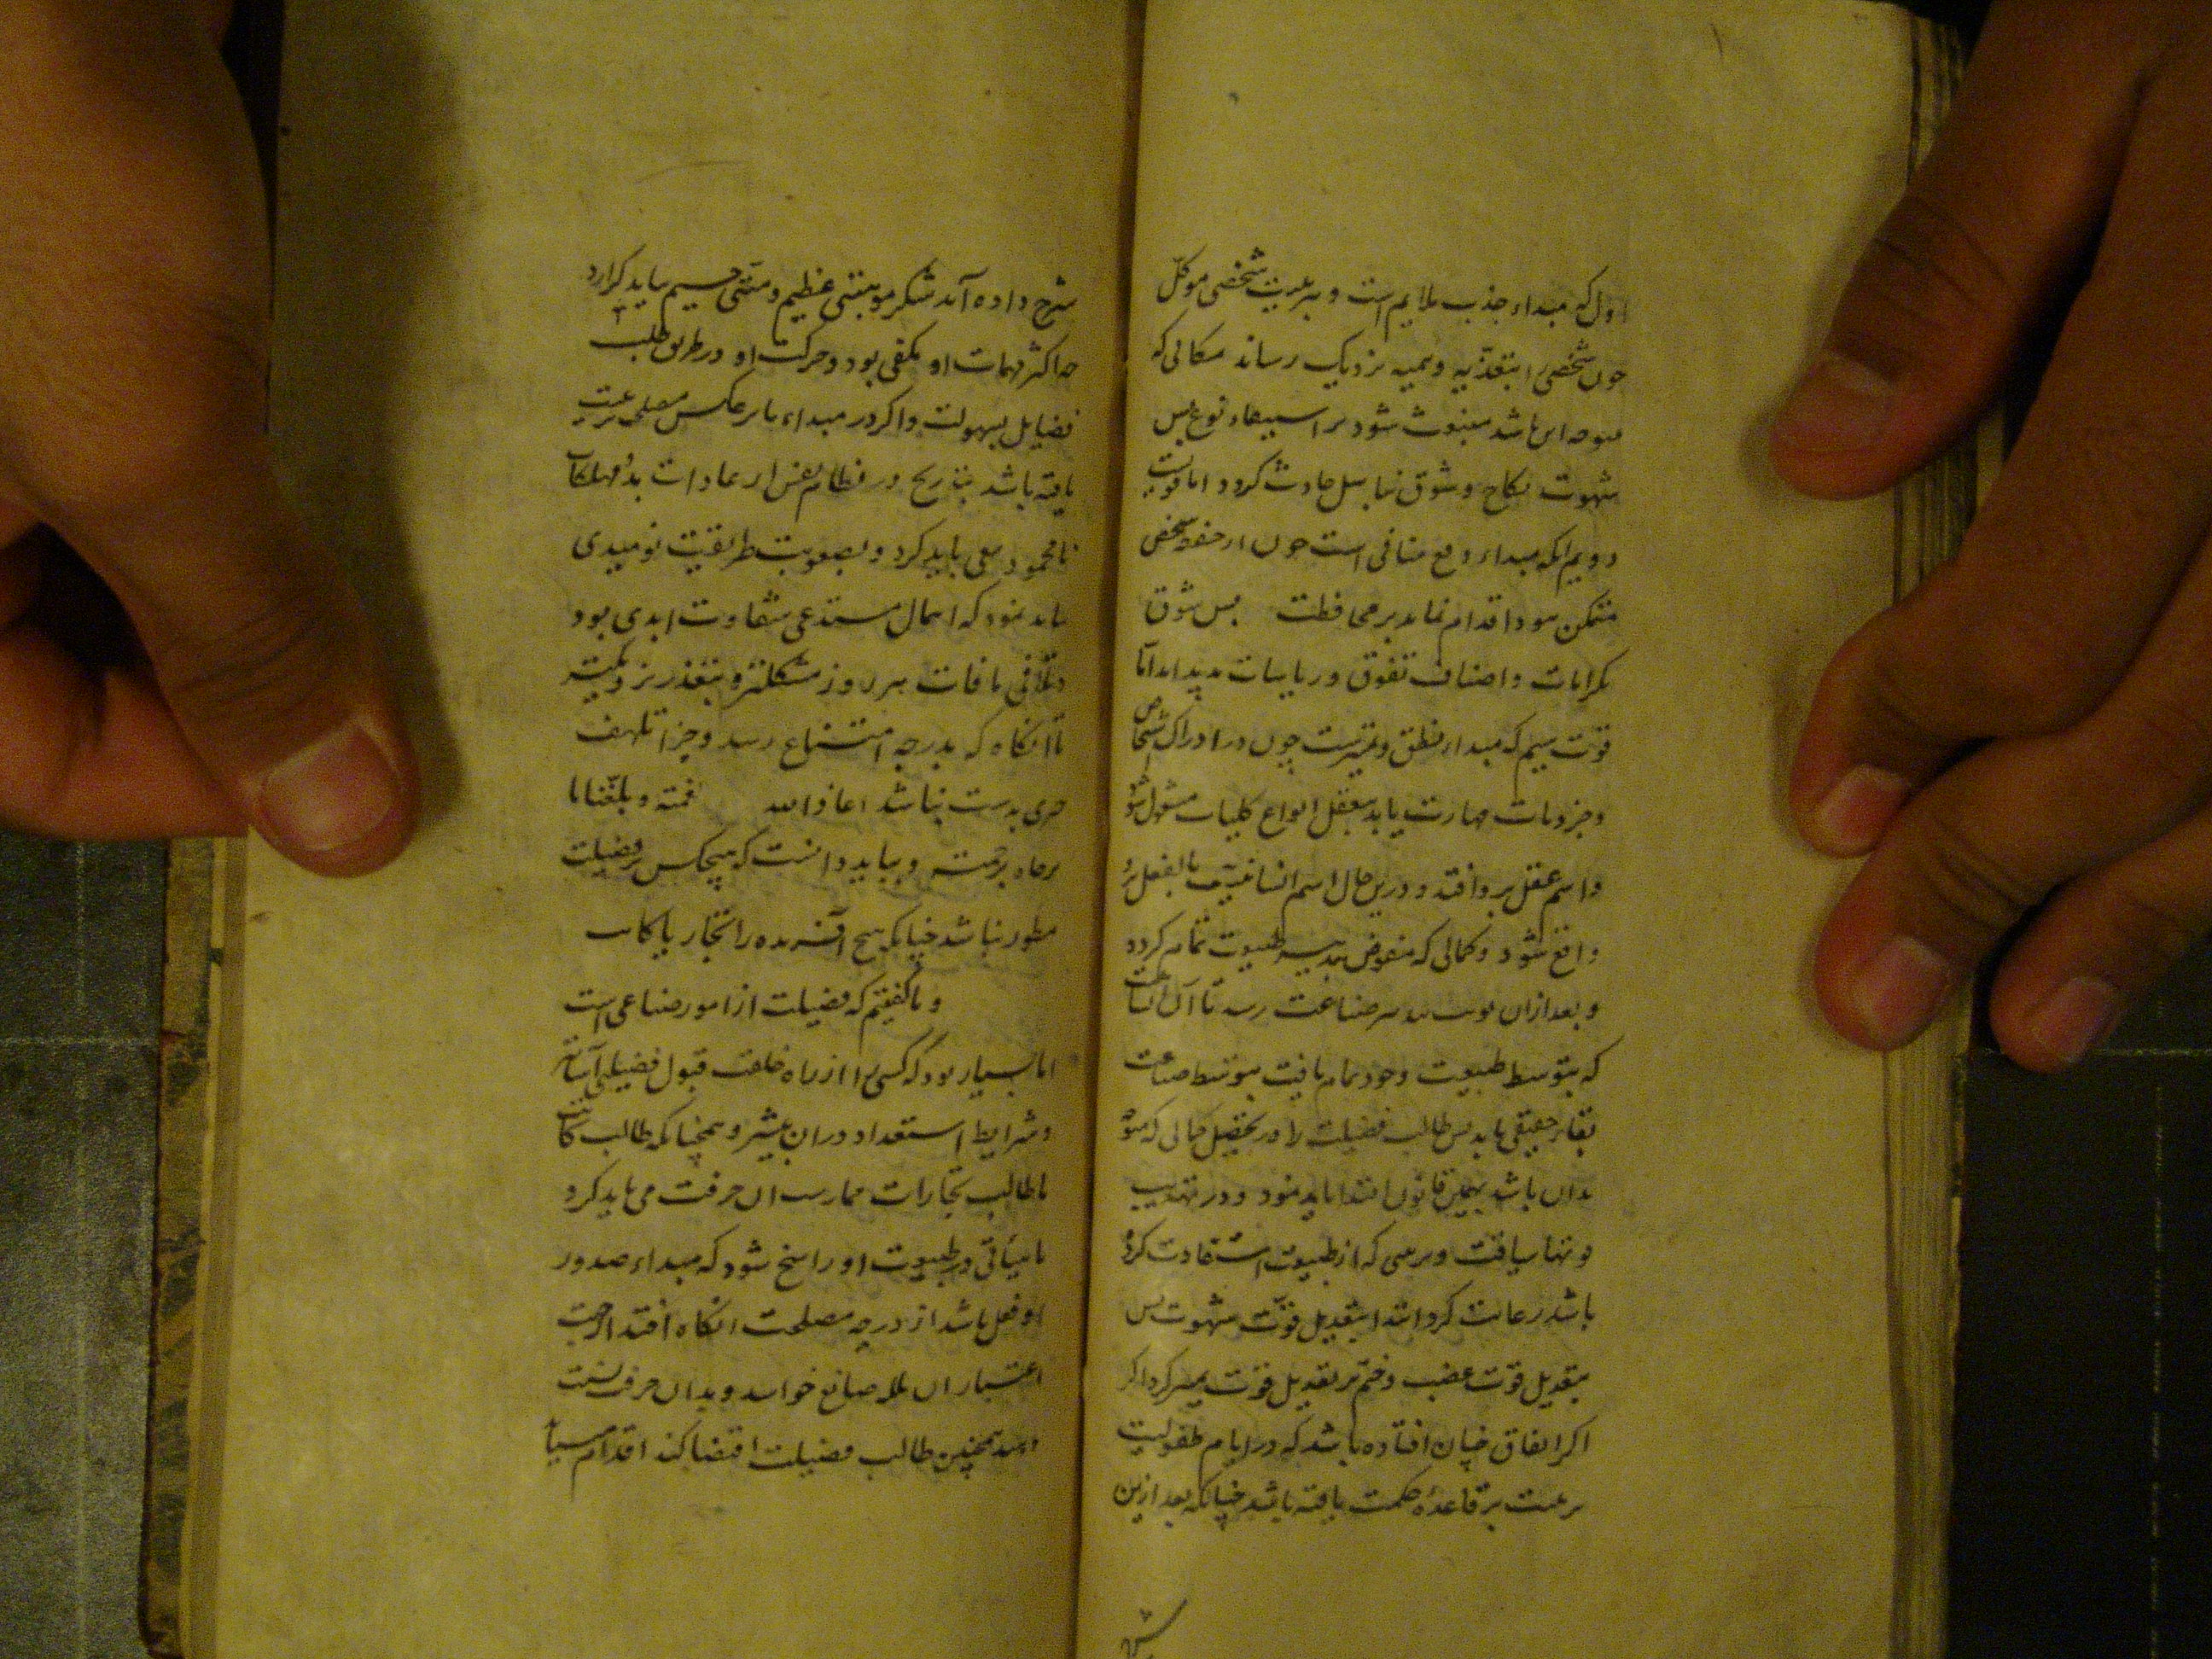 اول که مبداء جذب ملایم است و بتربیت شخصی موکل
چون شخص را بتغذیه و تنمیه نزدیک رساند بکمالی که
متوجه ان باشد منبعث شود بر استیفاء نوع پس
شهوت نکاح و شوق تناسل حادث کردد اما قوت
دویم انکه مبداء دفع منافی است چون از حفظ شخص
متمکن شود اقدام نماید بر محافظت پس شوق
بکرامات و اصناف تفوق و ریاسات پدید اید اما
قوت سیم که مبداء نطق و تمیزست چون در ادراک اشخاص
و جزویات مهارت یابد بتعقل انواع کلیات مشغول شود
و اسم عقل برو افتد و درین حال اسم انسانیت بالفعل برو
واقع شود و کمالی که مفوض بتدبیر طبیعت تمام کردد
و بعد ازان نوبت تدبیر صناعت رسد تا آن انسانیت
که بتوسط طبیعت وجود تمام یافت بتوسط صناعت
بقاء حقیقی یابد پس طالب فضیلت را در تحصیل کمالی که متوجه
بدان باشد بهمین قانون اقتدا باید نمود و در تهذیب
قوتها سیاقت و ترتیبی که از طبیعت استفادت کرده
باشد رعایت کرد ابتدا بتعدیل قوت شهوت پس
بتعدیل قوت غضب و ختم بر تعدیل قوت تمیز کرد اکر
اکر اتفاق چنان افتاده باشد که در ایام طفولیت
تربیت بر قاعده حکمت یافته باشد چنانکه بعد ازین
شرح داده آید شکر موهبتی عظیم و منتی جسیم باید کزارد
چه اکثر مهمات او مکفی بود و حرکت او در طریق طلب
فضایل بسهولت و اکر در مبداء بر عکس مصلحت تربیت
یافته باشد بتدریج در فطام نفس از عادات بد و ملکات
نامحمود سعی باید کرد و بصعوبت طریقت نومیدی
نباید نمود که اهمال مستدعی شقاوت ابدی بود
و تلافی مافات هر روز مشکلتر و بتعذر نزدیکتر
تا آنکاه که بدرجه امتناع رسد و جز تلهف
چیزی بدست نباشد اعاذنا الله عنه و بلغنا ما
نرجاه برحمته و بباید دانست که هیچکس بر فضیلت
مفطور نباشد چنانکه هیچ آفریده را نجار یا کاتب
و ما گفتیم که فضیلت از امور صناعی است
اما بسیار بود که کسی را از راه خلقت قبول فضیلتی آسانتر
و شرایط استعداد دران بیشتر و همچنانکه طالب کتابت
یا طالب نجارت ممارست ان حرفت می باید کرد
تا هیأتی در طبیعت او راسخ شود که مبداء صدور
ان فعل باشد از درجه مصلحت انکاه اقتدا از جهت
اعتبار ان ملکه صانع خوانند و بدان حرفت نسبت
دهند همچنین طالب فضیلت اقتضا کند اقدام